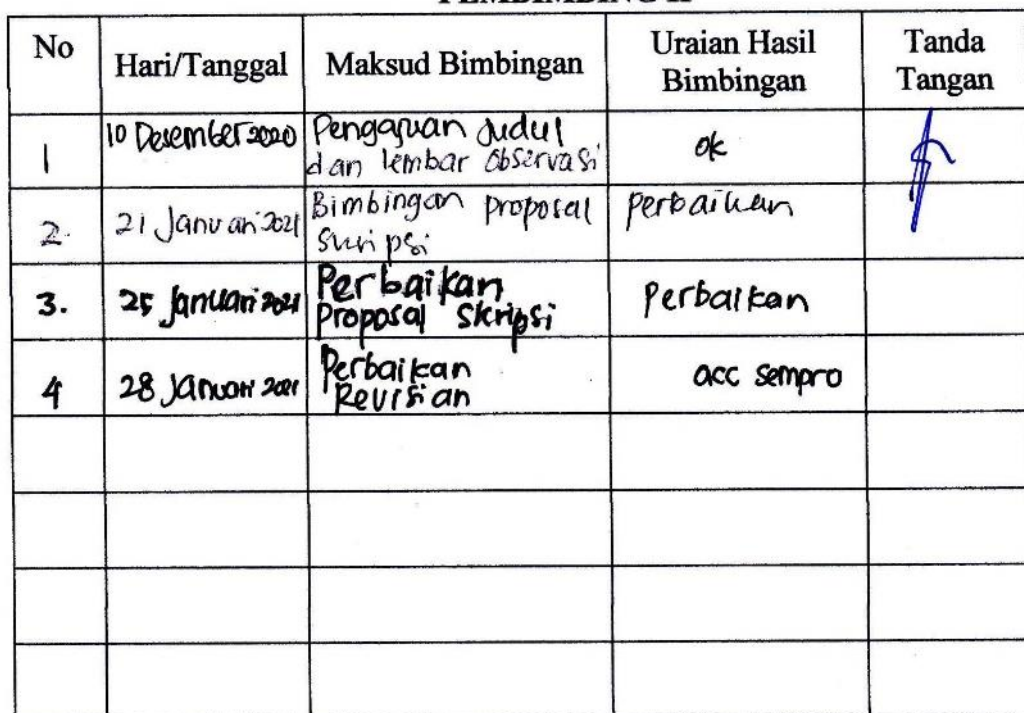 PEMBIMBING II
No
Hari/Tanggal
Maksud Bimbingan
Uraian Hasil
Bimbingan
Tanda
Tangan
1
10 Desember 2020
Pengajuan Judul
dan lembar observasi
ok
2.
21 Januari 2021
Bimbingan proposal
skripsi
perbaikan
3.
25 Januari 2021
Perbaikan
Proposal skripsi
Perbaikan
4
28 Januari 2021
Perbaikan
Revisian
acc sempro